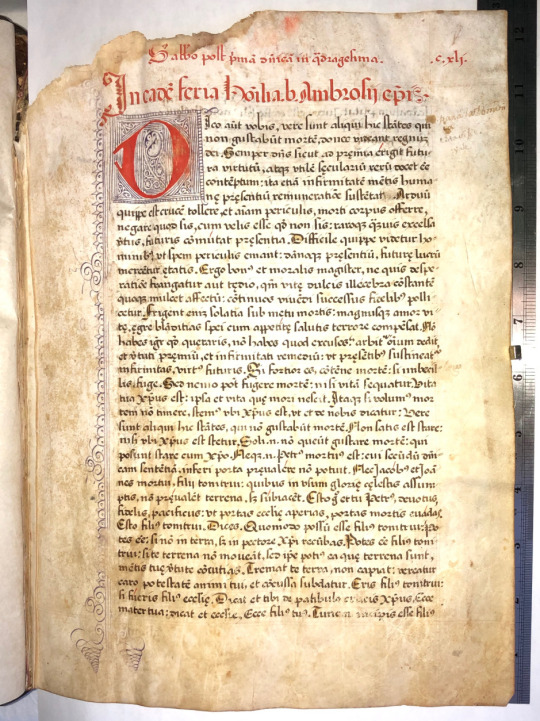 Sabbo post pmā dnicā in qdragesima.
.c.xli.
In eadē feria Omilia b. Ambrosii epi:
DIco aūt vobis, vere sunt aliqui hic stātes qui
non gustabūt mortē, donec videant regnū
dei. Semper dns sicut ad premia erigit futu
ra virtutū, atq vtile seculariū rerū docet eē
contemptum: ita etiā infirmitatē mētis huma
ne presentiū remuneratiōe sustētat. Arduū
quippe est crucē tollere, et aīam periculis, morti corpus offerre,
negare quod sis, cum velis esse qd non sis: raroq qmuis excelsa
vtus, futuris cōmutat presentia. Difficile quippe videtur ho
minibs vt spem periculis emant: dānaq presentiū, future lucrū
mercētur etatis. Ergo bonus et moralis magister, ne quis despe
ratiōe frangatur aut tedio, qm vite dulcis illecebra cōstante
quoq mulcet affectū: cōtinuos viuēdi successus fidelibs polli
cetur. Frigent enim solatia sub metu mortis: magnusq amor vi
te, egre blāditias spei cum appetitu salutis terrore compēsat. Nō
habes igr qd queraris, nō habes quod excuses: arbiter oīum dedit
et vtuti premiū, et infirmitati remediū: vt presētibs sustineatur
infirmitas, virtus futuris. Si fortior es, cōtēne mortē: si imbecil
lis, fuge. Sed nemo pōt fugere mortē: nisi vitā sequatur. Vita
tua xpus est: ipsa et vita que mori nescit. Itaq si volumus mor
tem nō timere, stemus vbi xpus est, vt et de nobis dicatur: Vere
sunt aliqui hic stātes, qui nō gustabūt mortē. Non satis est stare:
nisi vbi xpus est stetur. Soli. n. nō queūt gustare mortē: qui
possunt stare cum xpo. Neqz. n. Petrus mortuus est: cui secūdū dni
cam sentētiā, inferi porta preualēre nō potuit. Nec Jacobus et Joā
nes mortui, filii tonitrui: quibus in vsum glorie celestis assum
ptis, nō preualēt terrena, sz subiacēt. Esto g et tu Petrus, deuotus,
fidelis, pacificus: vt portas ecclie aperias, portas mortis euadas.
Esto filius tonitrui. Dices. Quomodo possū esse filius tonitrui: Po
tes eē: si nō in terra, sz in pectore xpi recūbas. Potes eē filius toni
trui: si te terrena nō moueāt, sed ipse potius ea que terrena sunt,
mētis tue vtute cōcutias. Tremat te terra, non capiat: vereatur
caro potestatē animi tui, et cōcussa subdatur. Eris filius tonitrui:
si fueris filius ecclie. Dicat et tibi de patibulo crucis xpus, Ecce
mater tua: dicat et ecclie, Ecce filius tuus. Tunc n. incipis esse filius